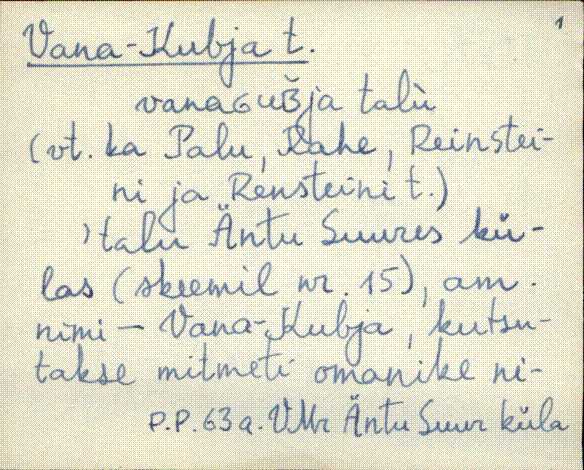 1
Vana-Kubja t.
vanaGuʙja talù
(vt. ka Palu, Rahe, Reinstei-
ni ja Rensteini t.)
talu Äntu Suures kü-
las (skeemil nr. 15), am.
nimi – Vana-Kubja, kutsu-
takse mitmeti omanike ni-
P.P. 63 a. VMr Äntu Suur küla